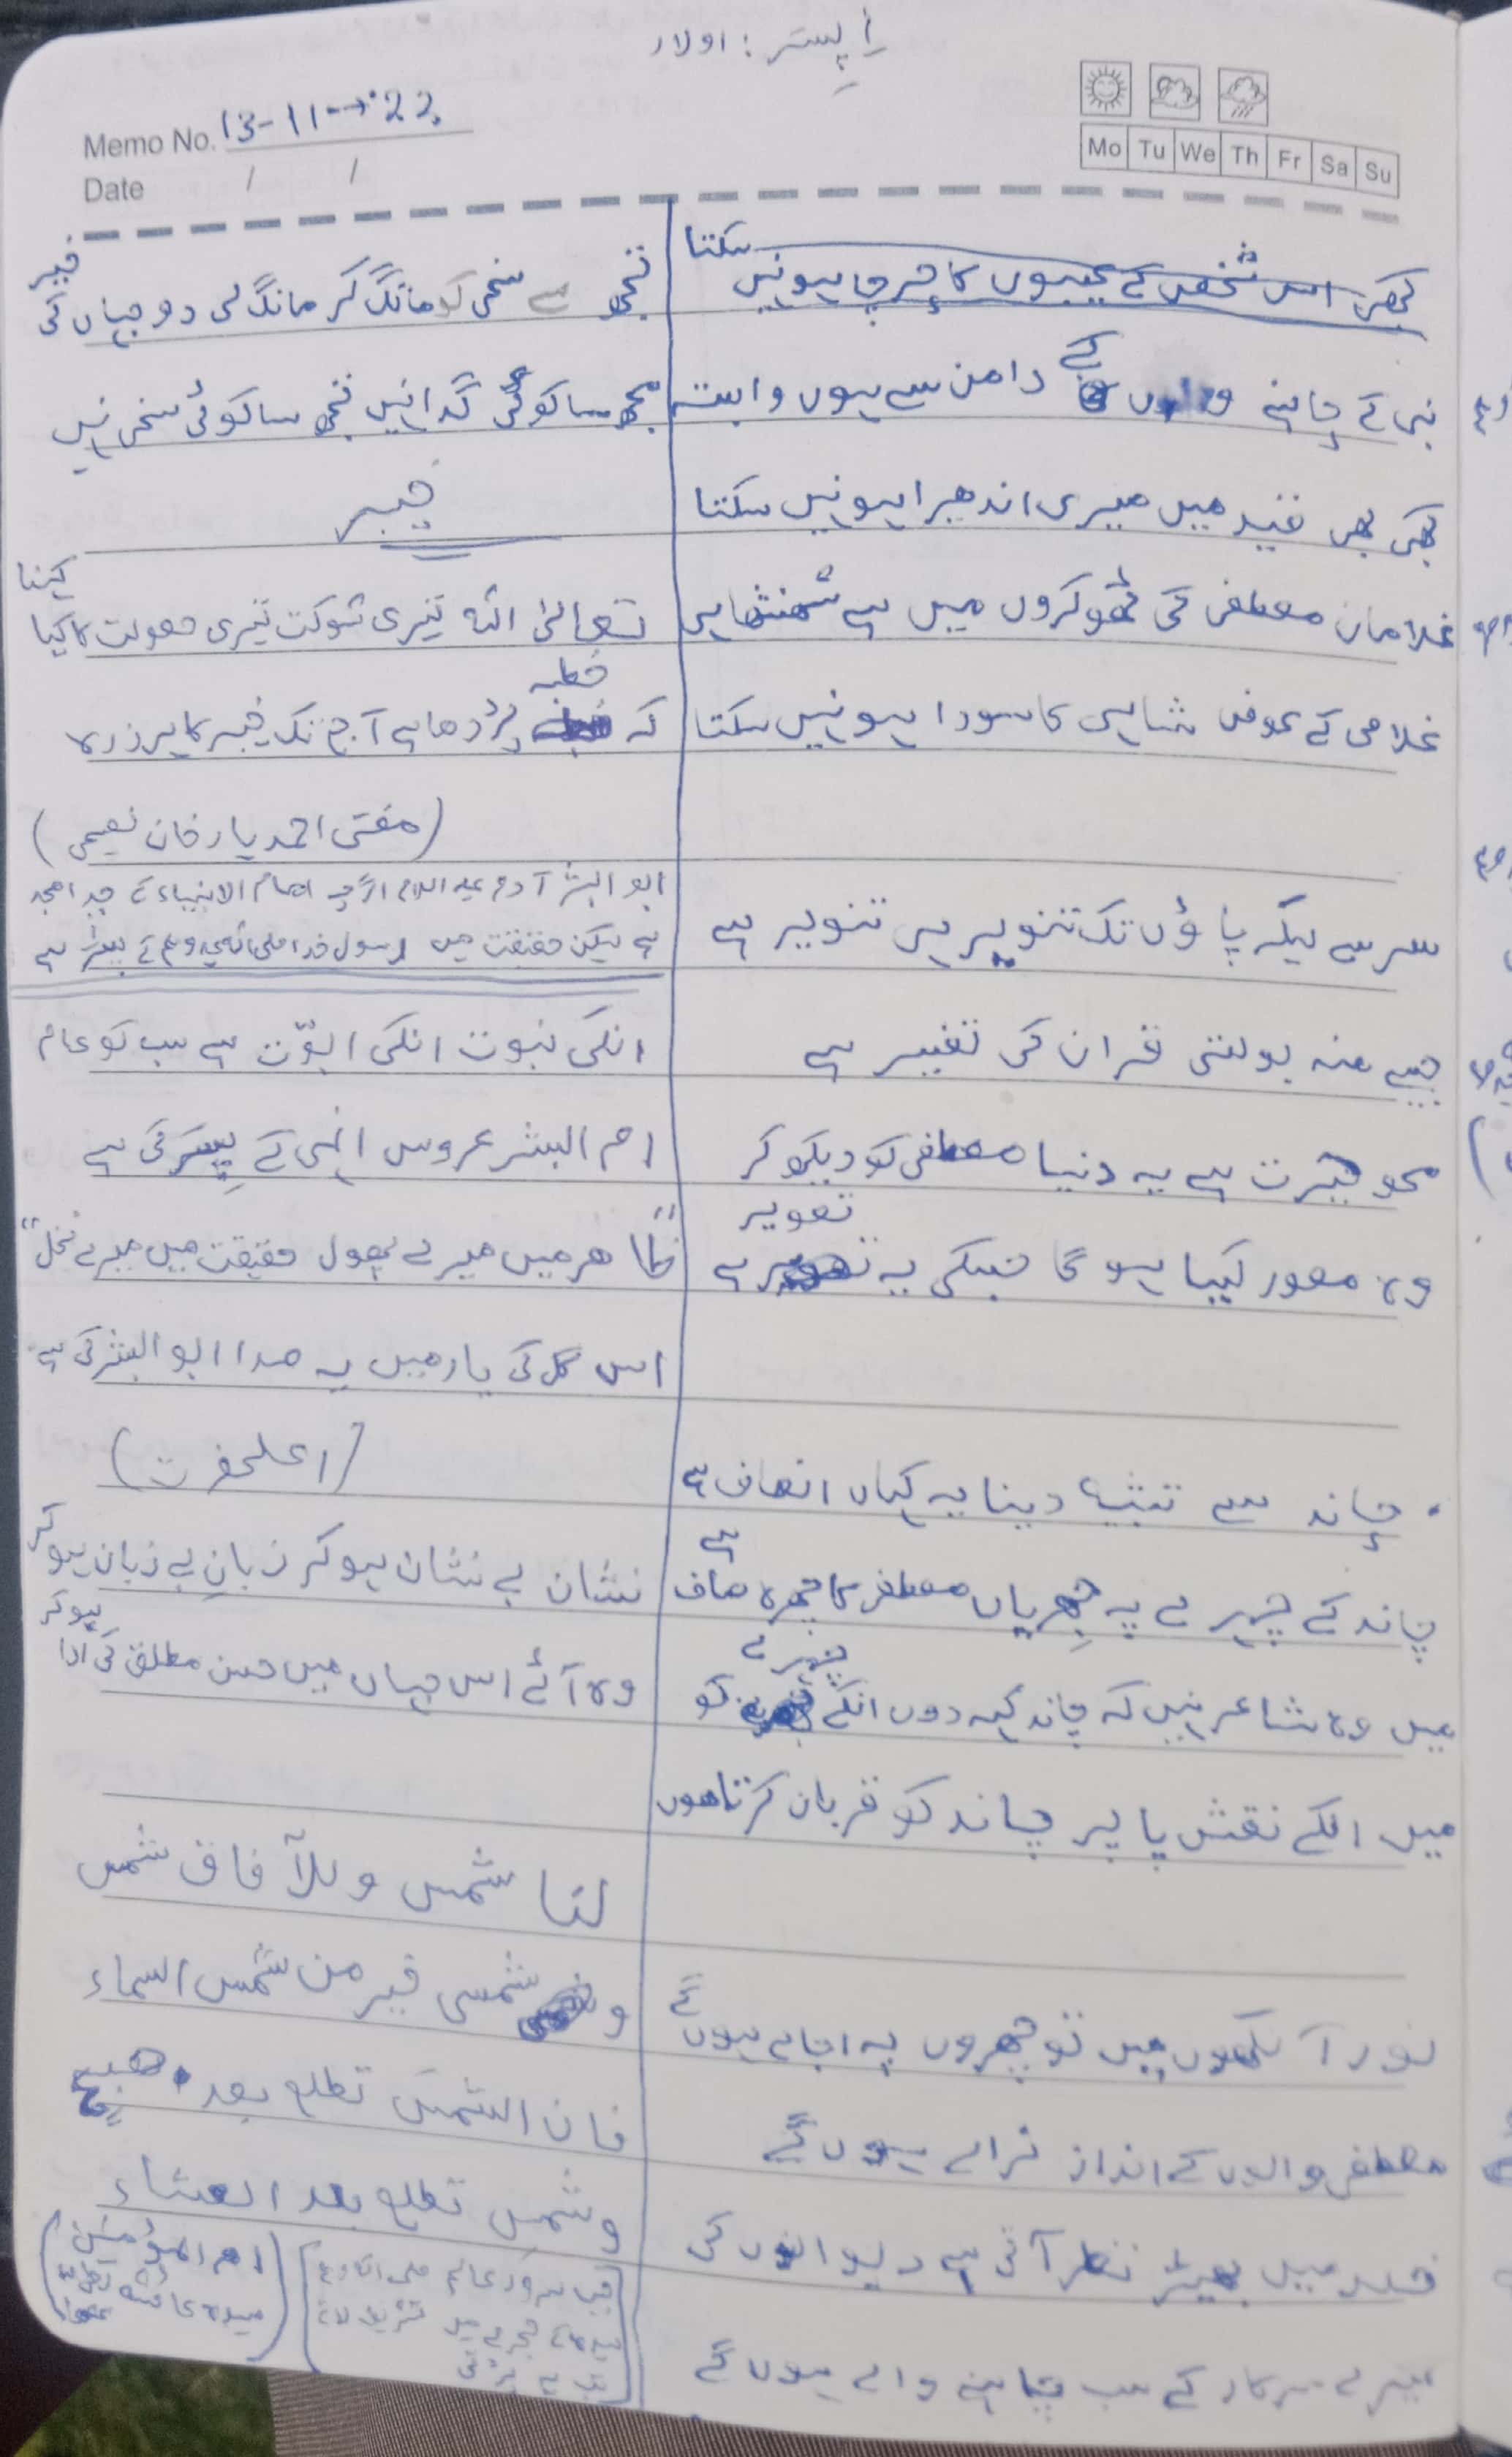 پِسَر : اولاد
Memo No. 13-11-22
Date / /
Mo Tu We Th Fr Sa Su
کبھی اس شخص کے عیبوں کا چرچا ہو نہیں سکتا
نبی کے چاہنے والوں کے دامن سے ہوں وابستہ
کبھی بھی قبر میں میری اندھیرا ہو نہیں سکتا
غلامان مصطفی کی ٹھوکروں میں ہے شہنشاہی
غلامی کے عوض شاہی کا سودا ہو نہیں سکتا
سر سے لیکر پاؤں تک تنویر ہی تنویر ہے
جیسے منہ بولتی قران کی تفسیر ہے
محو حیرت ہے یہ دنیا مصطفی کو دیکھ کر
وہ مصور کیسا ہو گا جسکی یہ تصویر ہے
چاند سے تشبیہ دینا یہ کہاں انصاف ہے
چاند کے چہرے پہ چھریاں مصطفی کا چہرہ صاف ہے
میں وہ شاعر نہیں کہ چاند کہہ دوں انکے چہرے کو
میں انکے نقش پا پر چاند کو قربان کرتا ھوں
نور آنکھوں میں تو چہروں پہ اجالے ہوں گے
مصطفی والوں کے انداز نرالے ہوں گے
خلد میں بھیڑ نظر آتی ہے دیوانوں کی
میرے سرکار کے سب چاہنے والے ہوں گے
تجھ سے تجھی کو مانگ کر مانگ لی دو جہاں کی خیر
مجھ سا کوئی گدا نہیں تجھ سا کوئی سخی نہیں
خیبر
تعالیٰ اللہ تیری شوکت تیری صولت کا کیا کہنا
کہ خطبہ پڑ رھا ہے آج تک خیبر کا ہر ذرہ
(مفتی احمد یار خان نعیمی)
ابو البشر آدم علیہ السلام اگرچہ امام الانبیاء کے جد امجد
ہے لیکن حقیقت میں رسول خدا صلی اللہ علیہ وسلم کے
انکی نبوت انکی ابوّت ہے سب کو عام
ام البشر عروس انہی کے پِسَر کی ہے
"ظا ھر میں میرے پھول حقیقت میں میرے نخل"
اس گل کی یاد میں یہ صدا ابو البشر کی ہے
(اعلحضرت)
نشان بے نشان ہو کر زبانِ بے زبان ہو کر
وہ آئے اس جہاں میں حسن مطلق کی ادا ہو کر
لنا شمس وللآفاق شمس
و شمسی خیر من شمس السماء
فان الشمس تطلع بعد صبح
وشمس تطلع بعد العشاء
(ام المؤمنین سیدہ عائشہ)